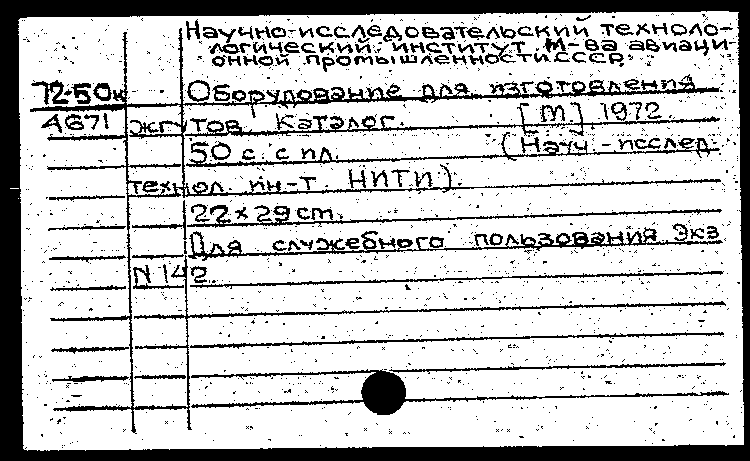 Научно-исследовательский техноло-
логический институт М-ва авиаци-
онной промышленности СССР.
72-50к Оборудование для изготовления
4671 жгутов. Каталог. [М] 1972
50 с. с пл. (Науч.-исслед.
технол. ин-т. НИТИ).
22×29 cm.
Для служебного пользования Экз
N 142